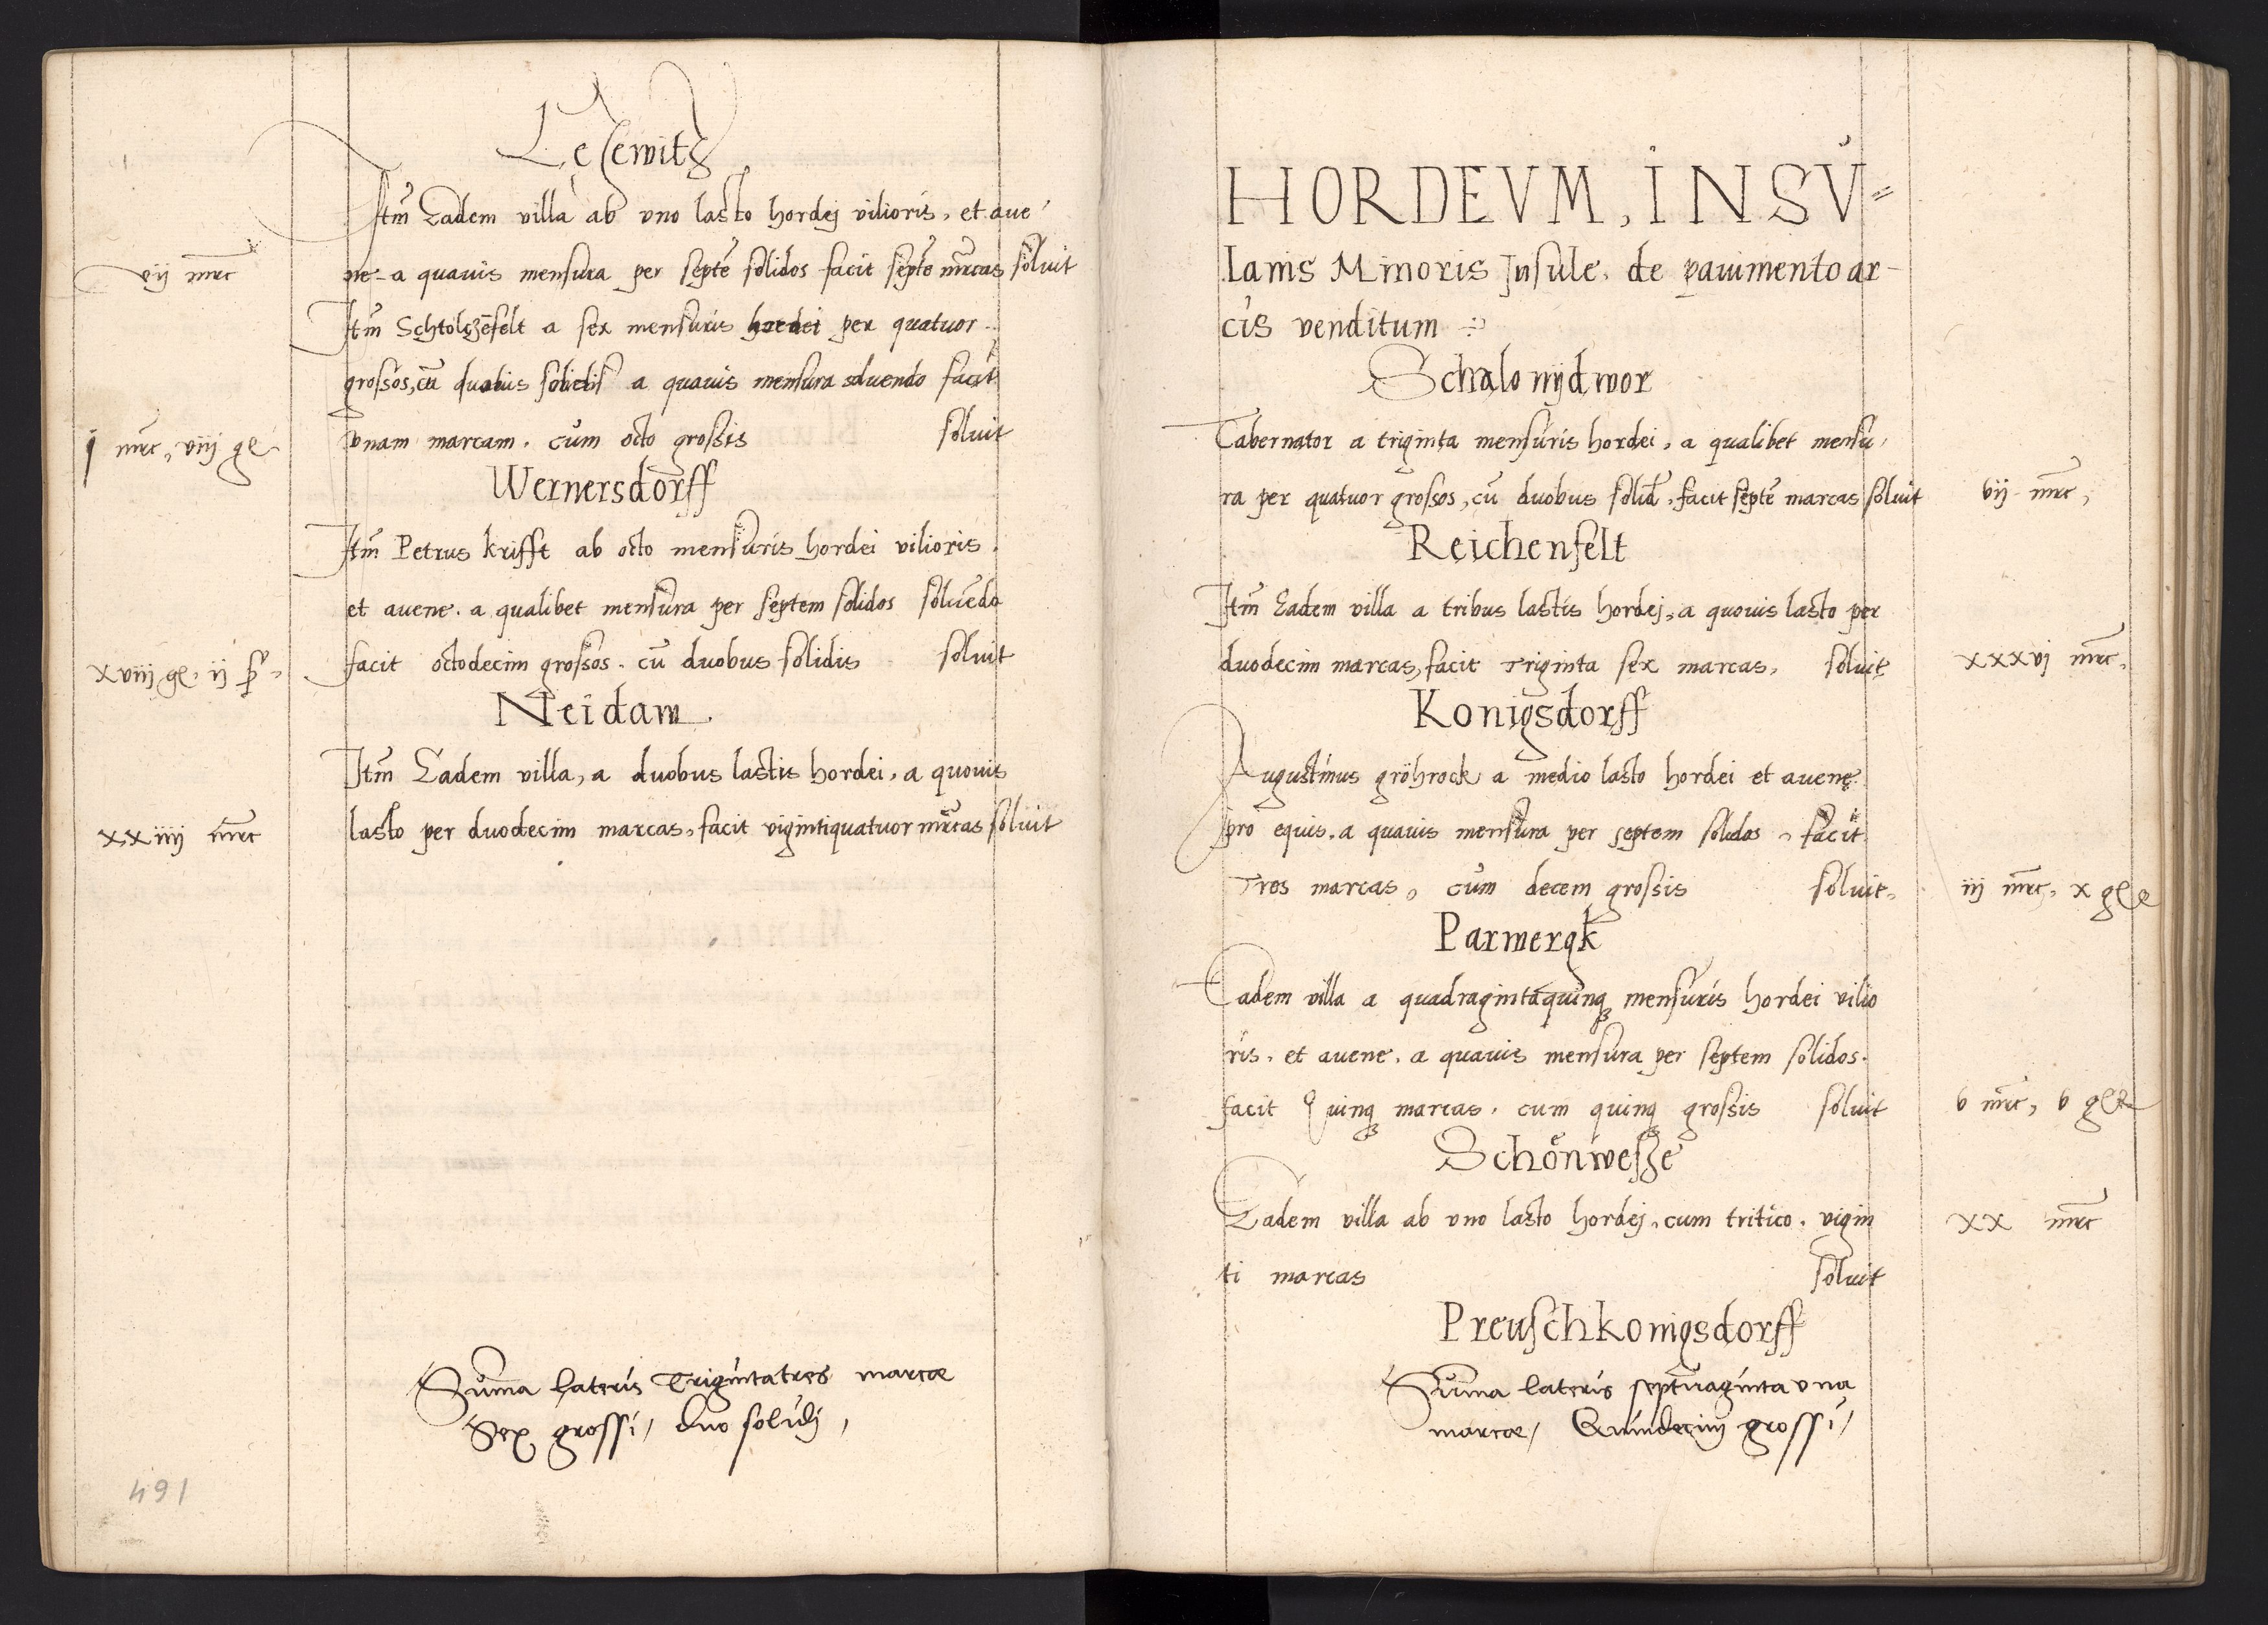 Lesewitz
Itm̄ Eadem villa ab vno lasto hordej vilioris, et aue
vij mrc
ne a quauis mensura per septē solidos facit septē mrcas soluit
Itm̄ Schtolczēfelt a sex mensuris hordei per quatuor
grossos, cū duobus solidis a quauis mensura soluendo facit
j mrc, viij gr
vnam marcam. cum octo grossis soluit
Wernersdorff
Itm̄ Petrus krifft ab octo mensuris hordei vilioris.
et auene. a qualibet mensura per septem solidos soluēdo
xviij gr. ij ſ
facit octodecim grossos. cū duobus solidis soluit
Neidaw.
Itm̄ Eadem villa, a duobus lastis hordei, a quouis
xxiiij mrc
lasto per duodecim marcas, facit vigintiquatuor mrcas soluit
Sum̄a lateris Trigintatres marcæ
Sex grossi/ duo solidj,
491
HORDEVM, INSV=
lanis Minoris Insule. de pauimento ar-
cis venditum
Schalo nÿdwor
Tabernator a triginta mensuris hordei, a qualibet mensu,
ra per quatuor grossos, cū duobus solid. facit septē marcas soluit
vij mrc,
Reichenfelt
Itm̄ Eadem villa a tribus lastis hordej, a quouis lasto per
duodecim marcas, facit Triginta sex marcas, soluit
xxxvj mrc.
Konigsdorff
Augustinus gröhrock a medio lasto hordei et auenę
pro equis. a quauis mensura per septem solidos, facit
Tres marcas, cum decem grossis soluit.
iij mrc, x gr
Parwergk
Eadem villa a quadragintaquinq; mensuris hordei vilio
ris. et auene. a quauis mensura per septem solidos.
facit Quinq; marcas. cum quinq; grossis soluit
v mrc, v gr
Schönwesze
Eadem villa ab vno lasto hordej, cum tritico. vigin
xx mrc
ti marcas soluit
Preuschkonigsdorff
Sum̄a lateris septuaginta vna
marcæ/ Quindecim grossi/